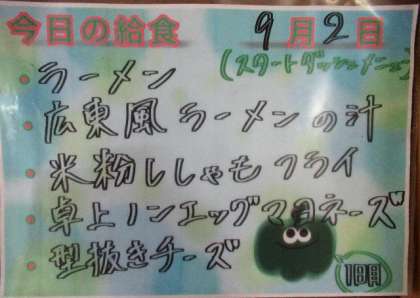 今日の給食 9月2日
(スタートダッシュメニュー)
・ラーメン
・広東風ラーメンの汁
・米粉ししゃもフライ
・卓上ノンエッグマヨネーズ
・型抜きチーズ
1日目